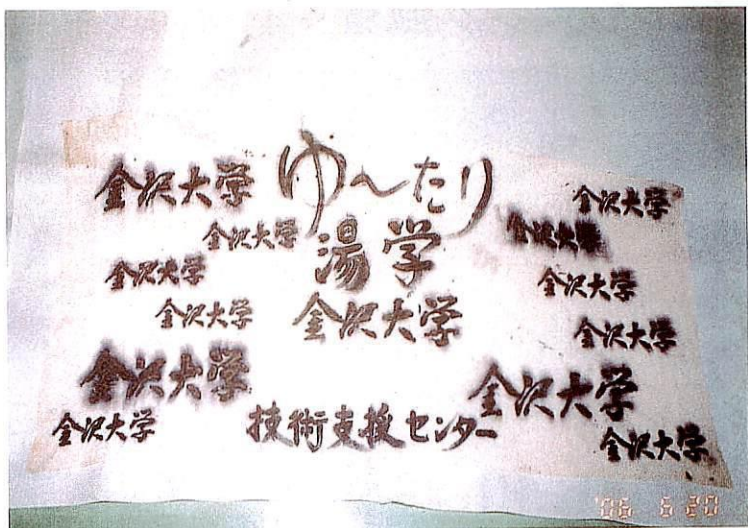 金沢大学
ゆ〜たり
金沢大学
金沢大学
湯学
金沢大学
金沢大学
金沢大学
金沢大学
金沢大学
金沢大学
金沢大学
金沢大学
金沢大学
金沢大学
技術支援センター
金沢大学
'06 6 20